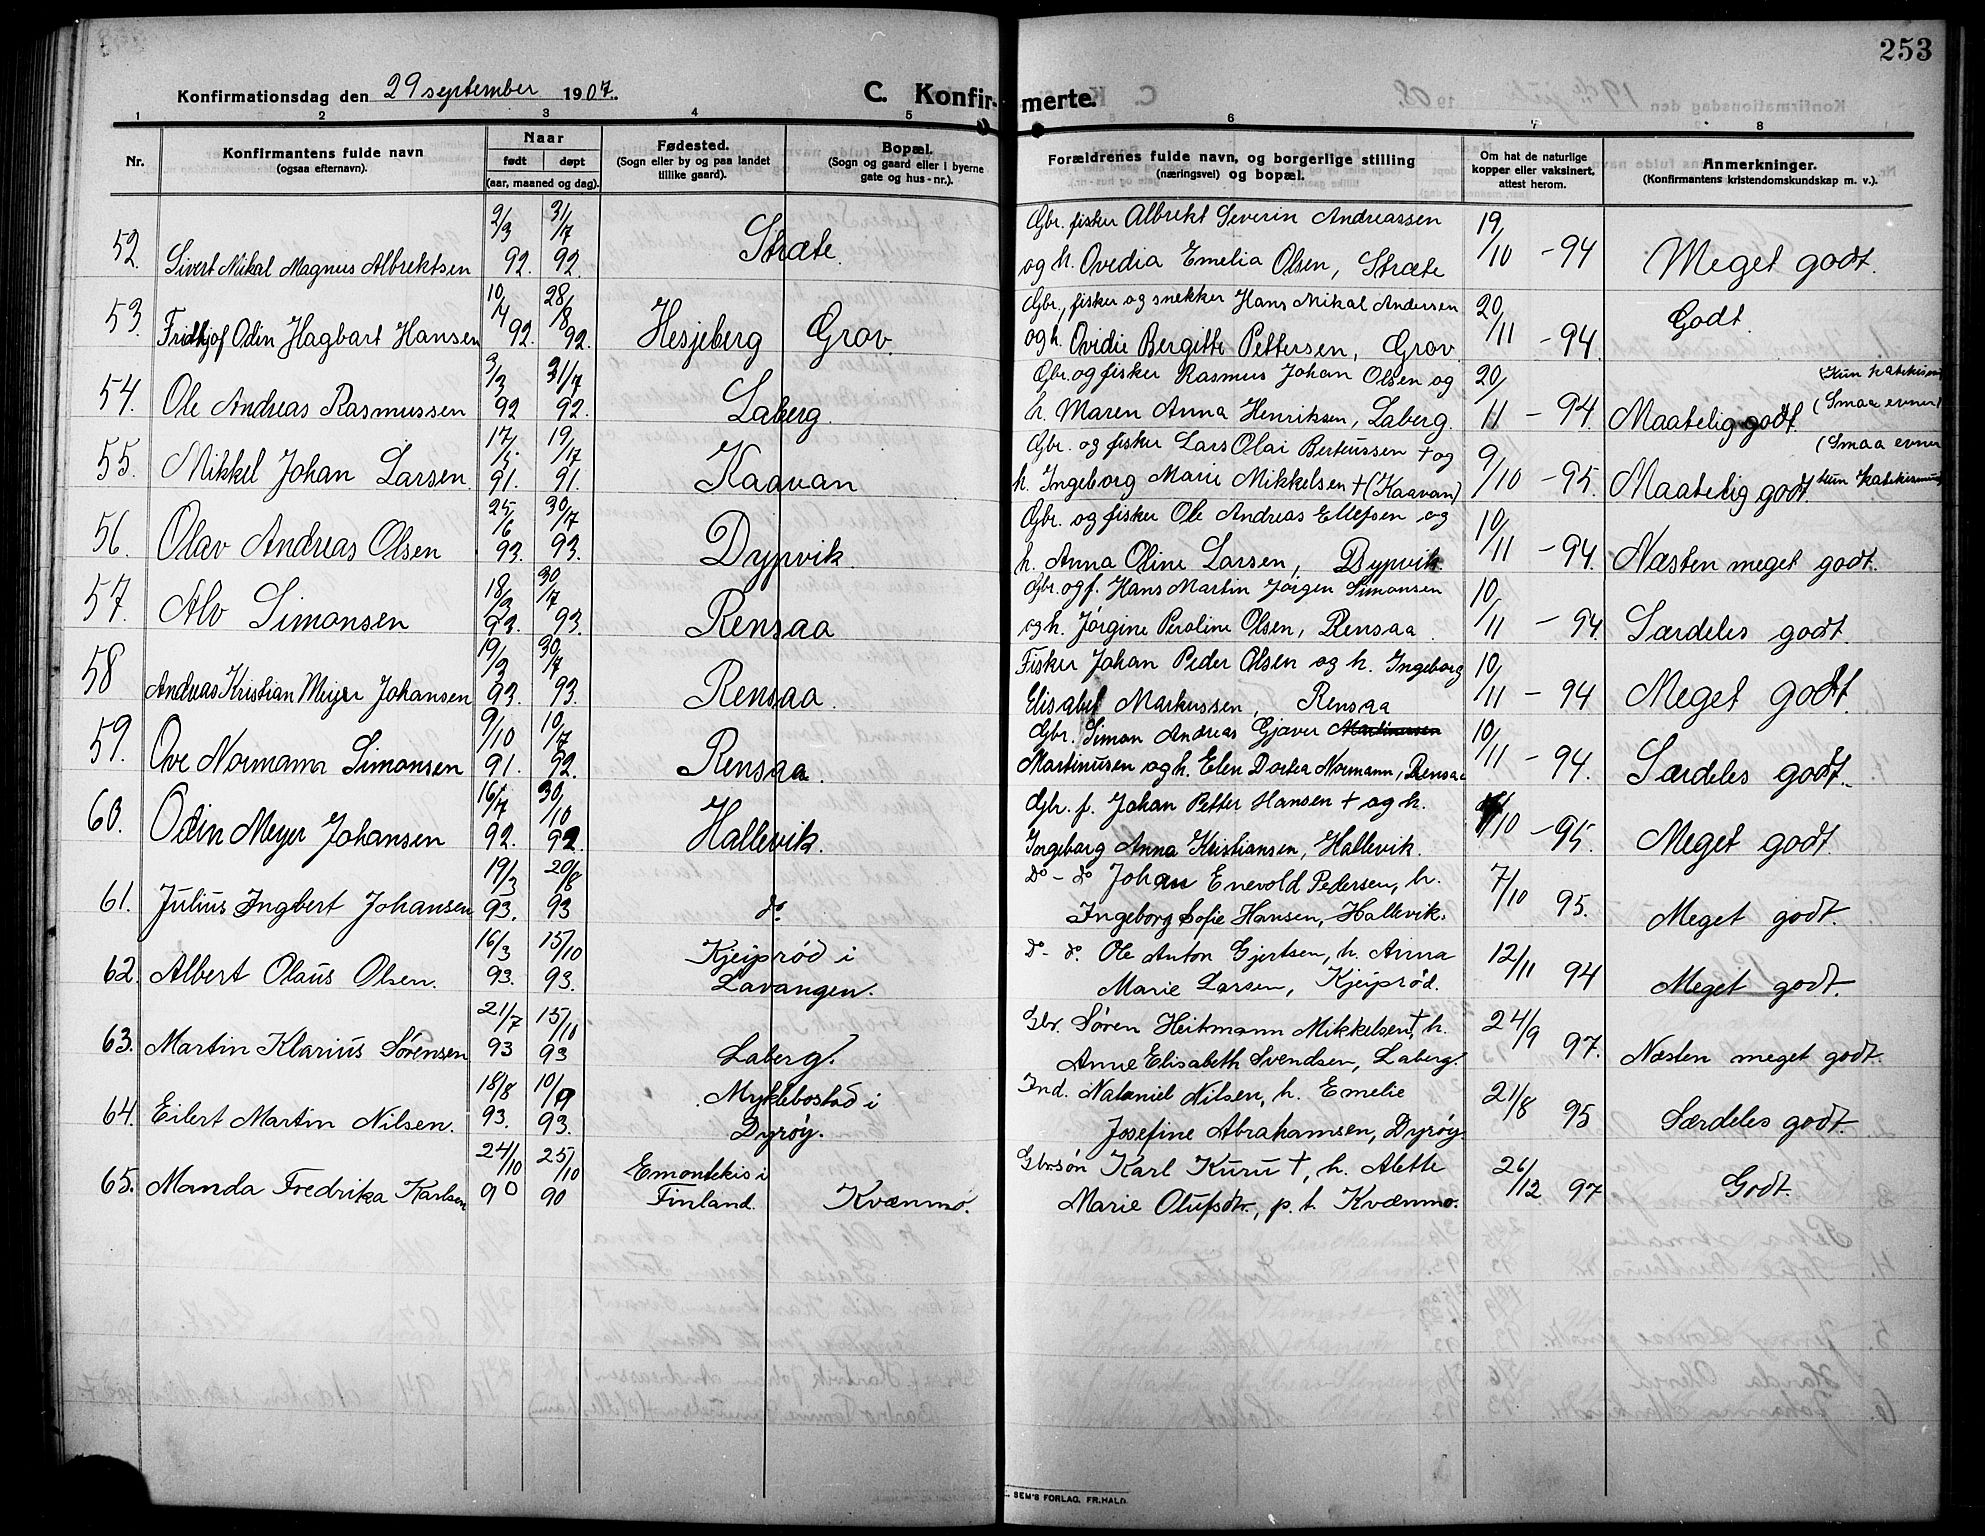 253
Konfirmationsdag den 29 september 1907.
C. Konfirmerte.
1 2 3 4 5 6 7 8
Nr.
Konfirmantens fulde navn
(ogsaa efternavn).
Naar
født døpt
(aar, maaned og dag).
Fødested.
(Sogn eller by og paa landet
tillike gaard).
Bopæl.
(Sogn og gaard eller i byerne
gate og hus-nr.).
Forældrenes fulde navn, og borgerlige stilling
(næringsvei) og bopæl.
Om hat de naturlige
kopper eller vaksinert,
attest herom.
Anmerkninger.
(Konfirmantens kristendomskundskap m. v.).
2/3 31/7 Gbr. fisker Albrekt Severin Andreassen 19
52. Sivert Mikal Magnus Albrektsen 92. 92. Stræte. og h. Ovedia Emelia Olsen, Stræte /10 - 94 Meget godt.
10/4 28/8 Gbr., fisker og snekker Hans Mikal Andersen 20
53. Fridtjof Odin Hagbart Hansen 92. 92. Hesjeberg Grov. og h. Ovidie Bergitte Pettersen, Grov. /11 - 94. Godt.
3/3 31/7 Gbr. og fisker Rasmus Johan Olsen og 20/ (Kun katekismus
54. Ole Andreas Rasmussen 92 92. Laberg. h. Maren Anna Henriksen, Laberg. 11 - 94. Maatelig godt. (Smaa evner)
17/5 19/17 Gbr. og fisker Lars Olai Berteussen + og 9 (Smaa evner
55. Mikkel Johan Larsen. 91. 91. Kaavan h. Ingeborg Marie Mikkelsen + (Kaavan) /10 - 95. Maatelig godt. kun katekismus
25/6 30/7 Gbr. og fisker Ole Andreas Ellefsen og 10
56. Olav Andreas Olsen 93. 93. Dypvik. h. Anna Oline Larsen, Dypvik. /11 - 94. Næsten meget godt.
18/3 30/7 Gbr. og f. Hans Martin Jörgen Simonsen 10
57. Alv Simonsen 93. 93. Rensaa og h. Jörgine Peroline Olsen, Rensaa. /11 - 94 Særdeles godt.
19/3 30/7 Fisker Johan Peder Olsen og h. Ingeborg 10
58 Andreas Kristian Meyer Johansen 93. 93. Rensaa. Elisabet Markussen, Rensaa /11 - 94 Meget godt.
9/10 10/7 Gbr. Simon Andreas Gjæver Martinussen 10
59. Ove Normann Simonsen 91. 92. Rensaa. Martinusen og h. Elen Dortea Normann, Rensaa /11 - 94. Særdeles godt.
16/7 30/10 Gbr. f. Johan Petter Hansen + og h.
60. Odin Meyer Johansen 92. 92. Hallevik. Ingeborg Anna Kristiansen, Hallevik. /10 - 95. Meget godt.
19/3 20/8 do - do Johan Enevold Pedersen, h. 7/10
61. Julius Ingbert Johansen 93. 93 do. Ingeborg Sofie Hansen, Hallevik. 95. Meget godt.
16/3 15/10 Kjeiprød i do - do. Ole Anton Gjertsen, h. Anna 12/11
62. Albert Olaus Olsen. 93. 93. Lavangen. Marie Larsen, Kjeiprød. 94 Meget godt.
21/7 15/10 Gbr. Søren Heitmann Mikkelsen +, h. 24/9
63. Martin Klarius Sørensen 93 93 Laberg. Anne Elisabeth Svendsen, Laberg. 97. Næsten meget godt.
18/8 10/9 Myklebostad i Ind. Nataniel Nilsen, h. Emelie 21/8
64. Eilert Martin Nilsen. 93. 93. Dyrøy. Josefine Abrahamsen, Dyrøy. 95 Særdeles godt.
24/10 25/10 Emontekis i Gbrsøn Karl Kuru +, h. Alette 26/12
65. Manda Fredrika Karlsen 90 90 Finland. Kvænmo. Marie Olufsdtr., p. t. Kvænmo. 97 Godt.
SEM'S FORLAG, FR.HALD.